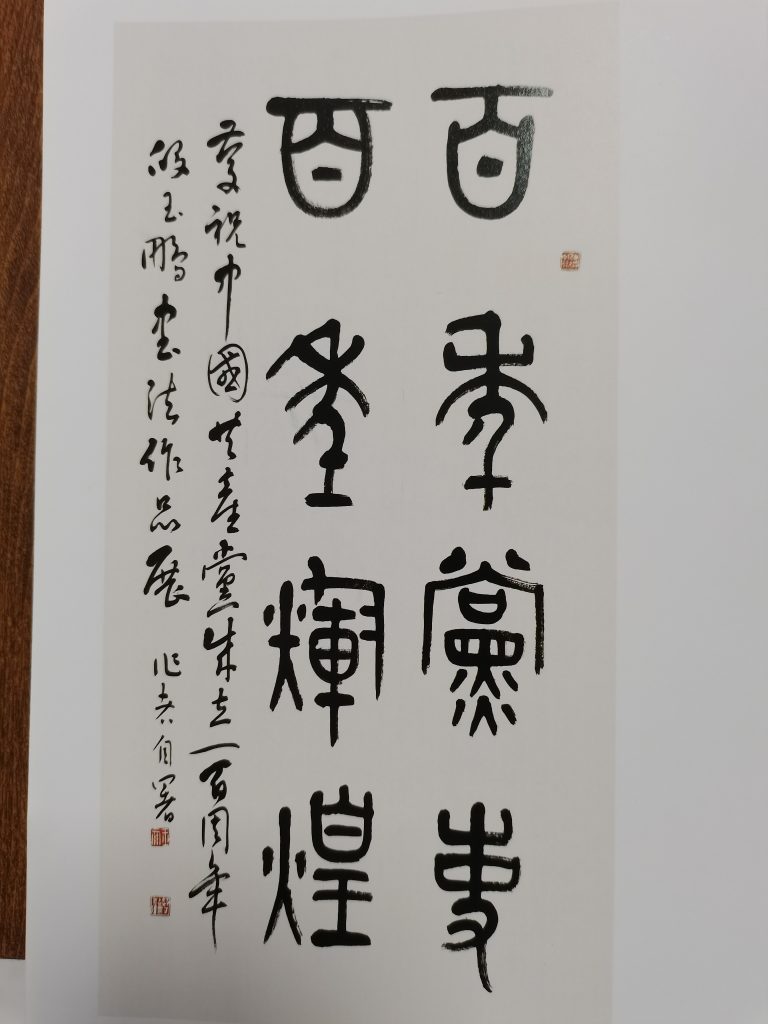 百年黨史
百年輝煌
慶祝中國共產黨成立一百周年
段玉鵬書法作品展 作者自署